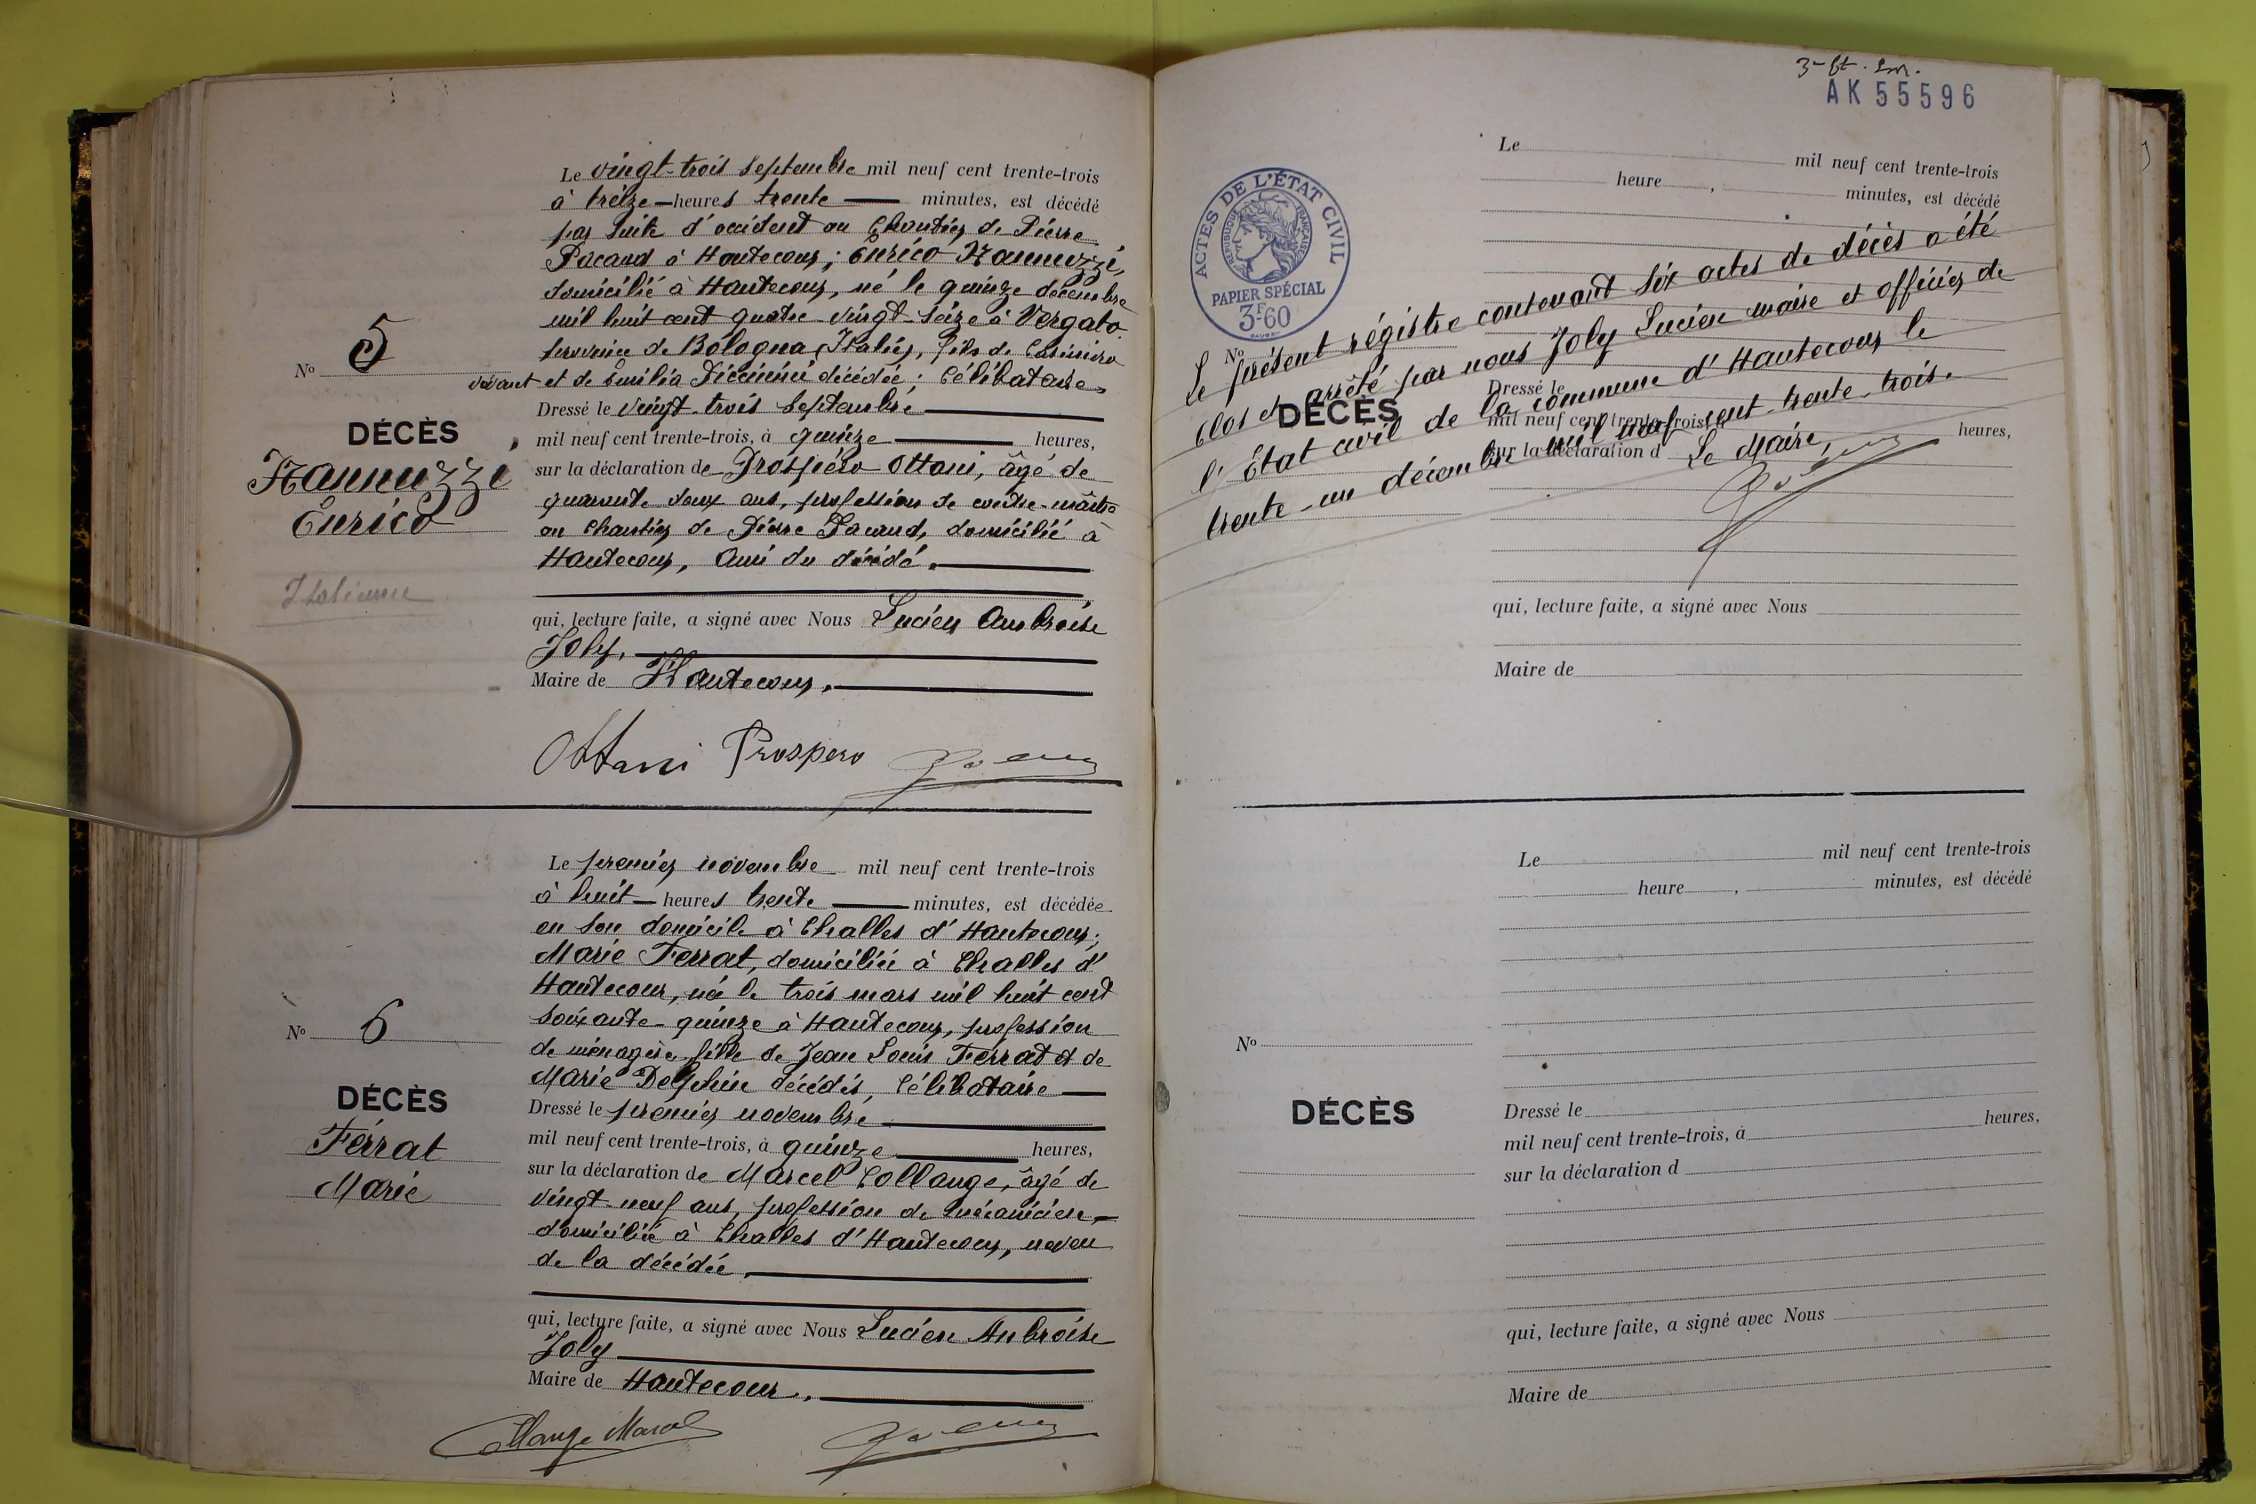 Le vingt-trois septembre mil neuf cent trente-trois
à treize heures trente minutes, est décédé
par suite d'accident au chantier de Pierre
Pacaud à Hautecour, Enrico Nannuzzi,
domicilié à Hautecour, né le quinze décembre
mil huit cent quatre-vingt-seize à Vergato
province de Bologna (Italie), fils de Casimiro
vivant et de Emilia Piccinini décédée; célibataire
No 5
DÉCÈS
Nannuzzi
Enrico
Italienne
Dressé le vingt-trois septembre
mil neuf cent trente-trois, à quinze heures,
sur la déclaration de Prospero Ottani, âgé de
quarante deux ans, profession de contre-maître
au chantier de Pierre Pacaud, domicilié à
Hautecour, ami du décédé.
qui, lecture faite, a signé avec Nous Lucien Ambroise
Joly.
Maire de Hautecour.
Ottani Prospero
Le premier novembre mil neuf cent trente-trois
à huit heures trente minutes, est décédée
en son domicile à Challes d'Hautecour;
Marie Ferrat, domiciliée à Challes d'
Hautecour, née le trois mars mil huit cent
soixante-quinze à Hautecour, profession
de ménagère, fille de Jean Louis Ferrat et de
Marie Delphin décédés, célibataire
No 6
DÉCÈS
Ferrat
Marie
Dressé le premier novembre
mil neuf cent trente-trois, à quinze heures,
sur la déclaration de Marcel Collange, âgé de
vingt-neuf ans, profession de mécanicien
domicilié à Challes d'Hautecour, neveu
de la décédée.
qui, lecture faite, a signé avec Nous Lucien Ambroise
Joly
Maire de Hautecour.
Collange Marcel
AK 55596
ACTES DE L'ÉTAT CIVIL
RÉPUBLIQUE FRANÇAISE
PAPIER SPÉCIAL
3F60
Le mil neuf cent trente-trois
heure , minutes, est décédé
Le présent régistre contenant six actes de décès a été
clos et arrêté par nous Joly Lucien maire et officier de
l'Etat civil de la commune d'Hautecour le
trente-un décembre mil neuf cent trente-trois.
Le Maire,
No
DÉCÈS
Dressé le
mil neuf cent trente-trois, à heures,
sur la déclaration d
qui, lecture faite, a signé avec Nous
Maire de
Le mil neuf cent trente-trois
heure , minutes, est décédé
No
DÉCÈS
Dressé le
mil neuf cent trente-trois, à heures,
sur la déclaration d
qui, lecture faite, a signé avec Nous
Maire de